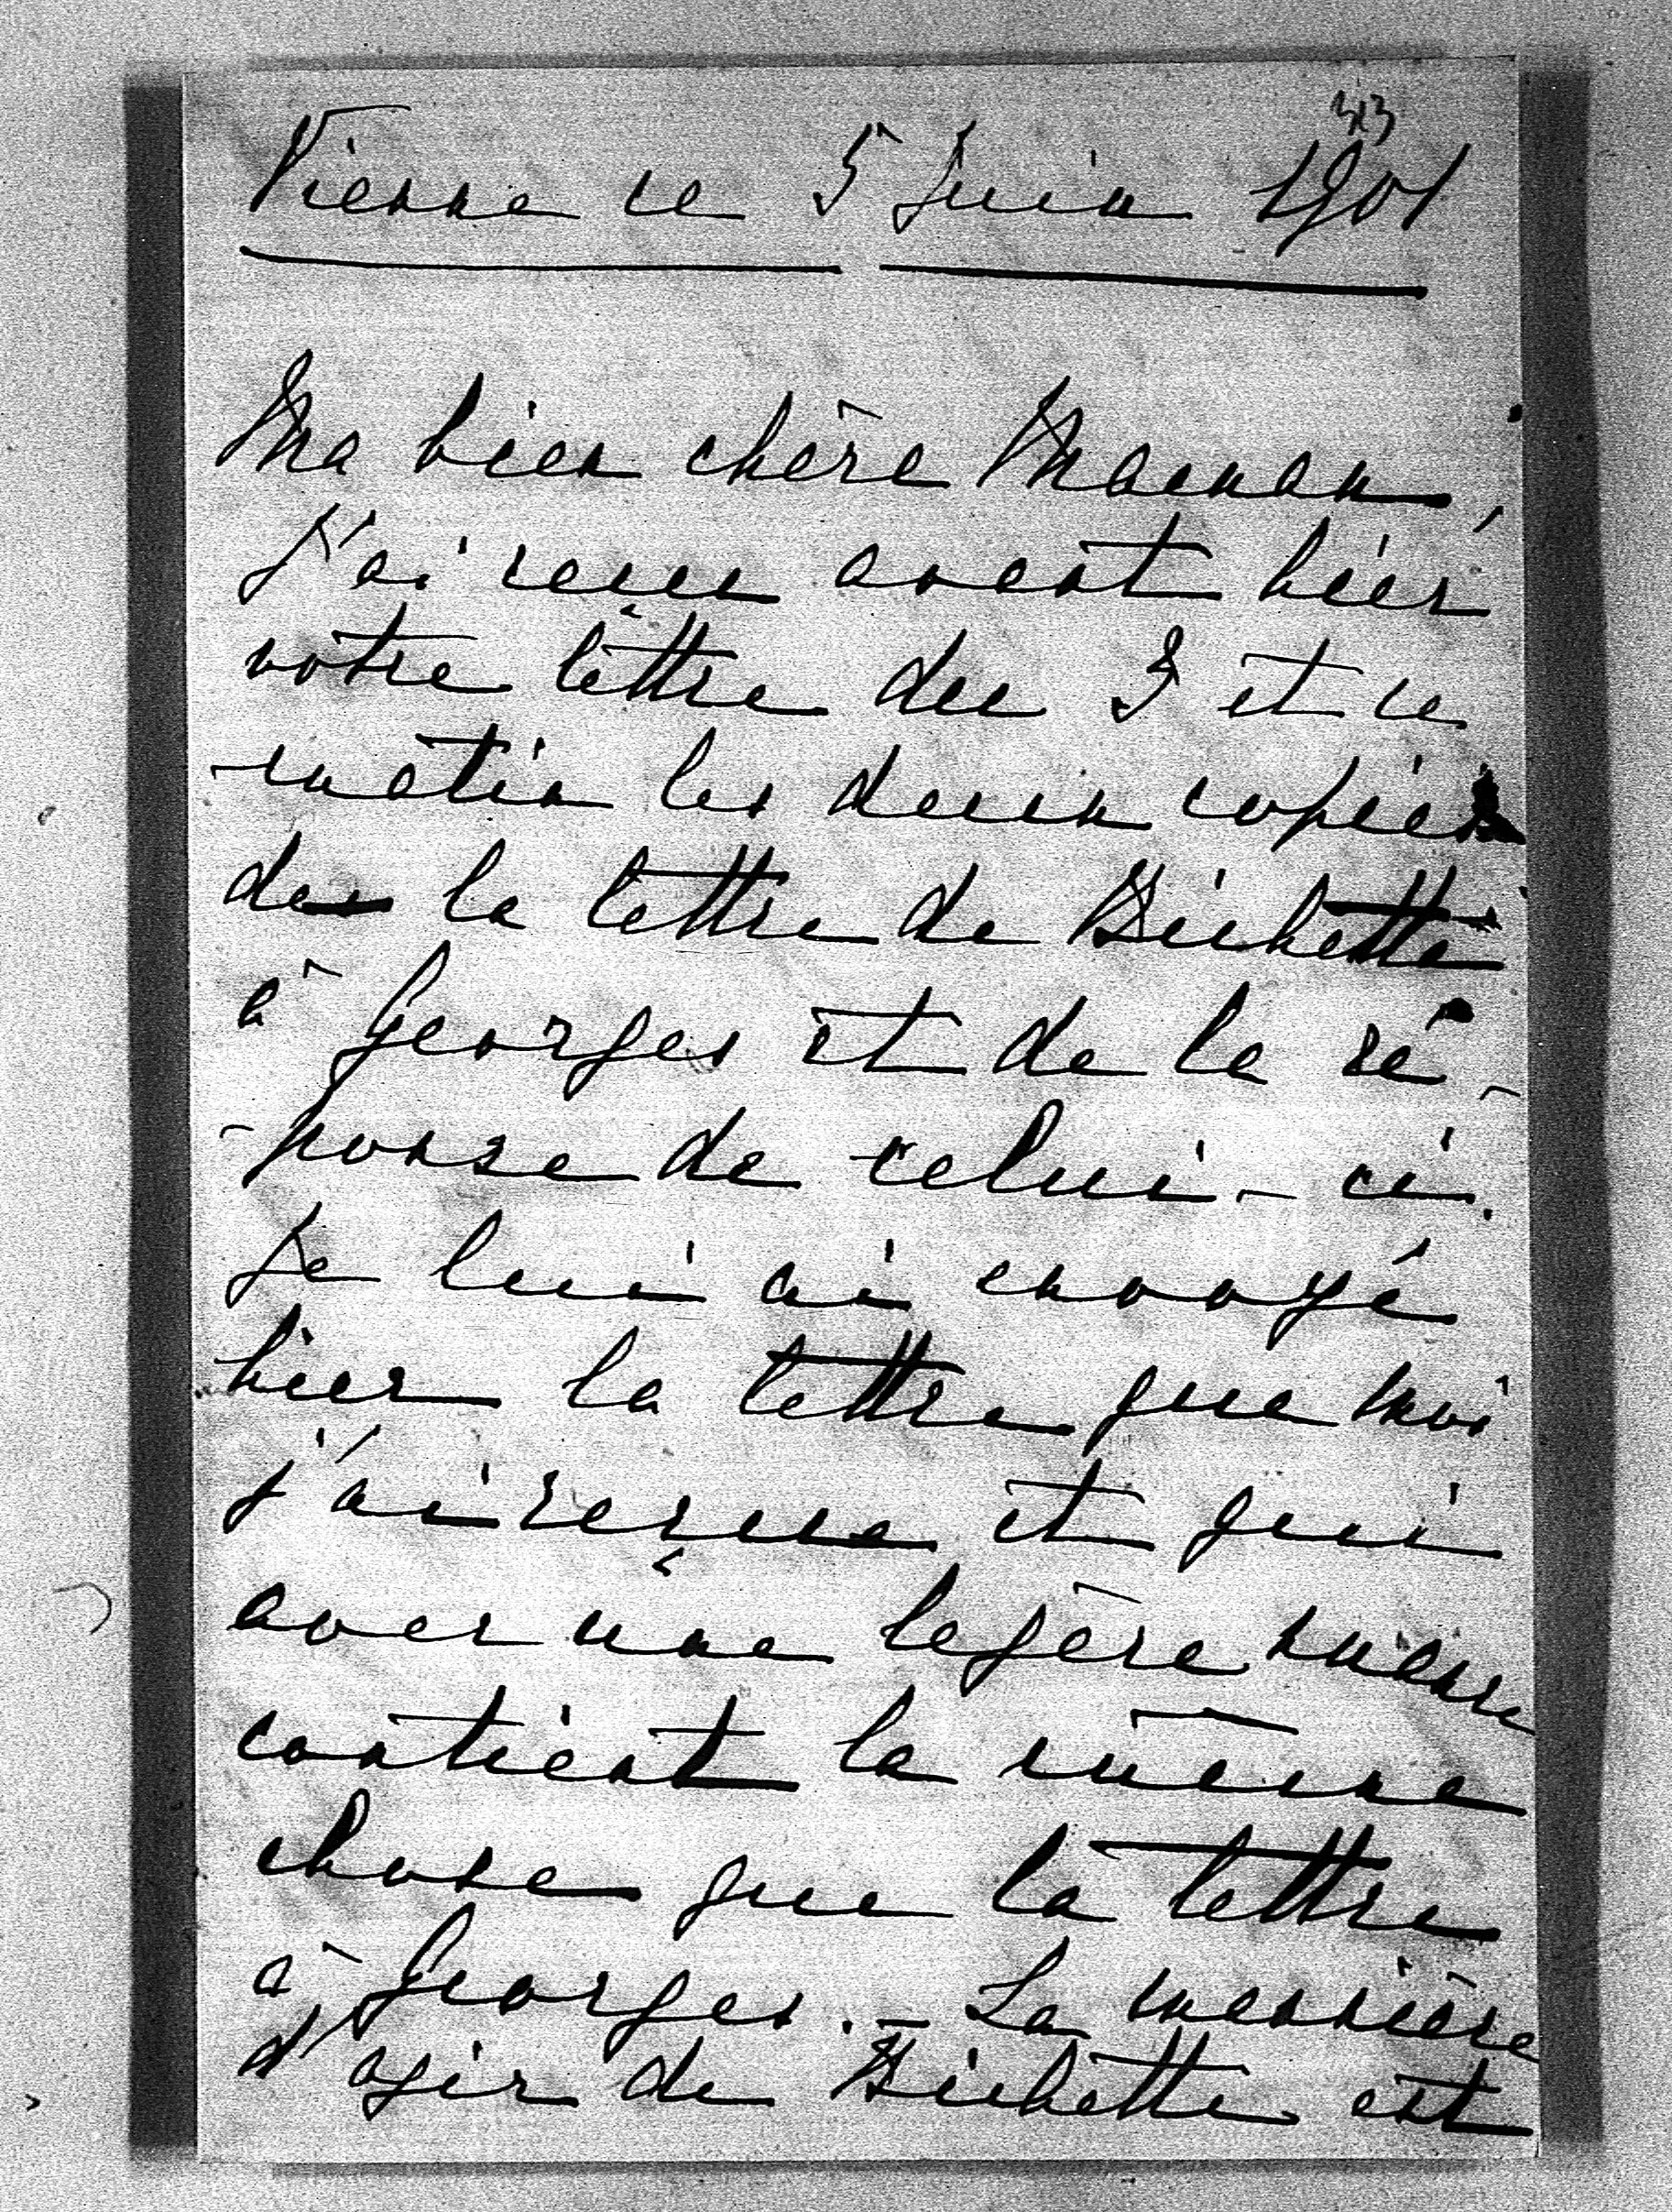 313
Vienne ce 5 Juin 1901
Ma bien chère Maman,
J'ai reçu avant hier
votre lettre du 3 et ce
matin les deux copies
de la lettre de Bichette
à Georges et de la ré-
-ponse de celui-ci.
Je lui ai envoyé
hier la lettre que moi
j'ai reçue et qui
avec une legère nuance
contient la même
chose que la lettre
à Georges. – La manière
d'agir de Bichette est